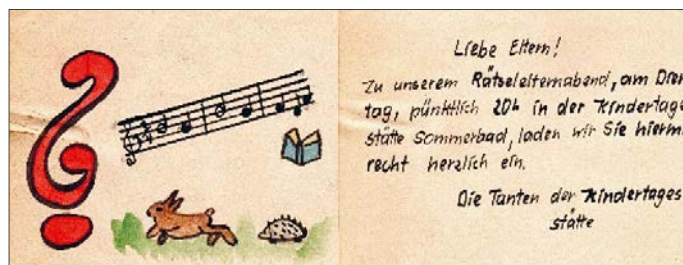 Liebe Eltern!
Zu unserem Rätselelternabend, am Diens
tag, pünktlich 20h in der Kindertages
stätte Sommerbad, laden wir Sie hiermi
recht herzlich ein.
Die Tanten der Kindertages
stätte